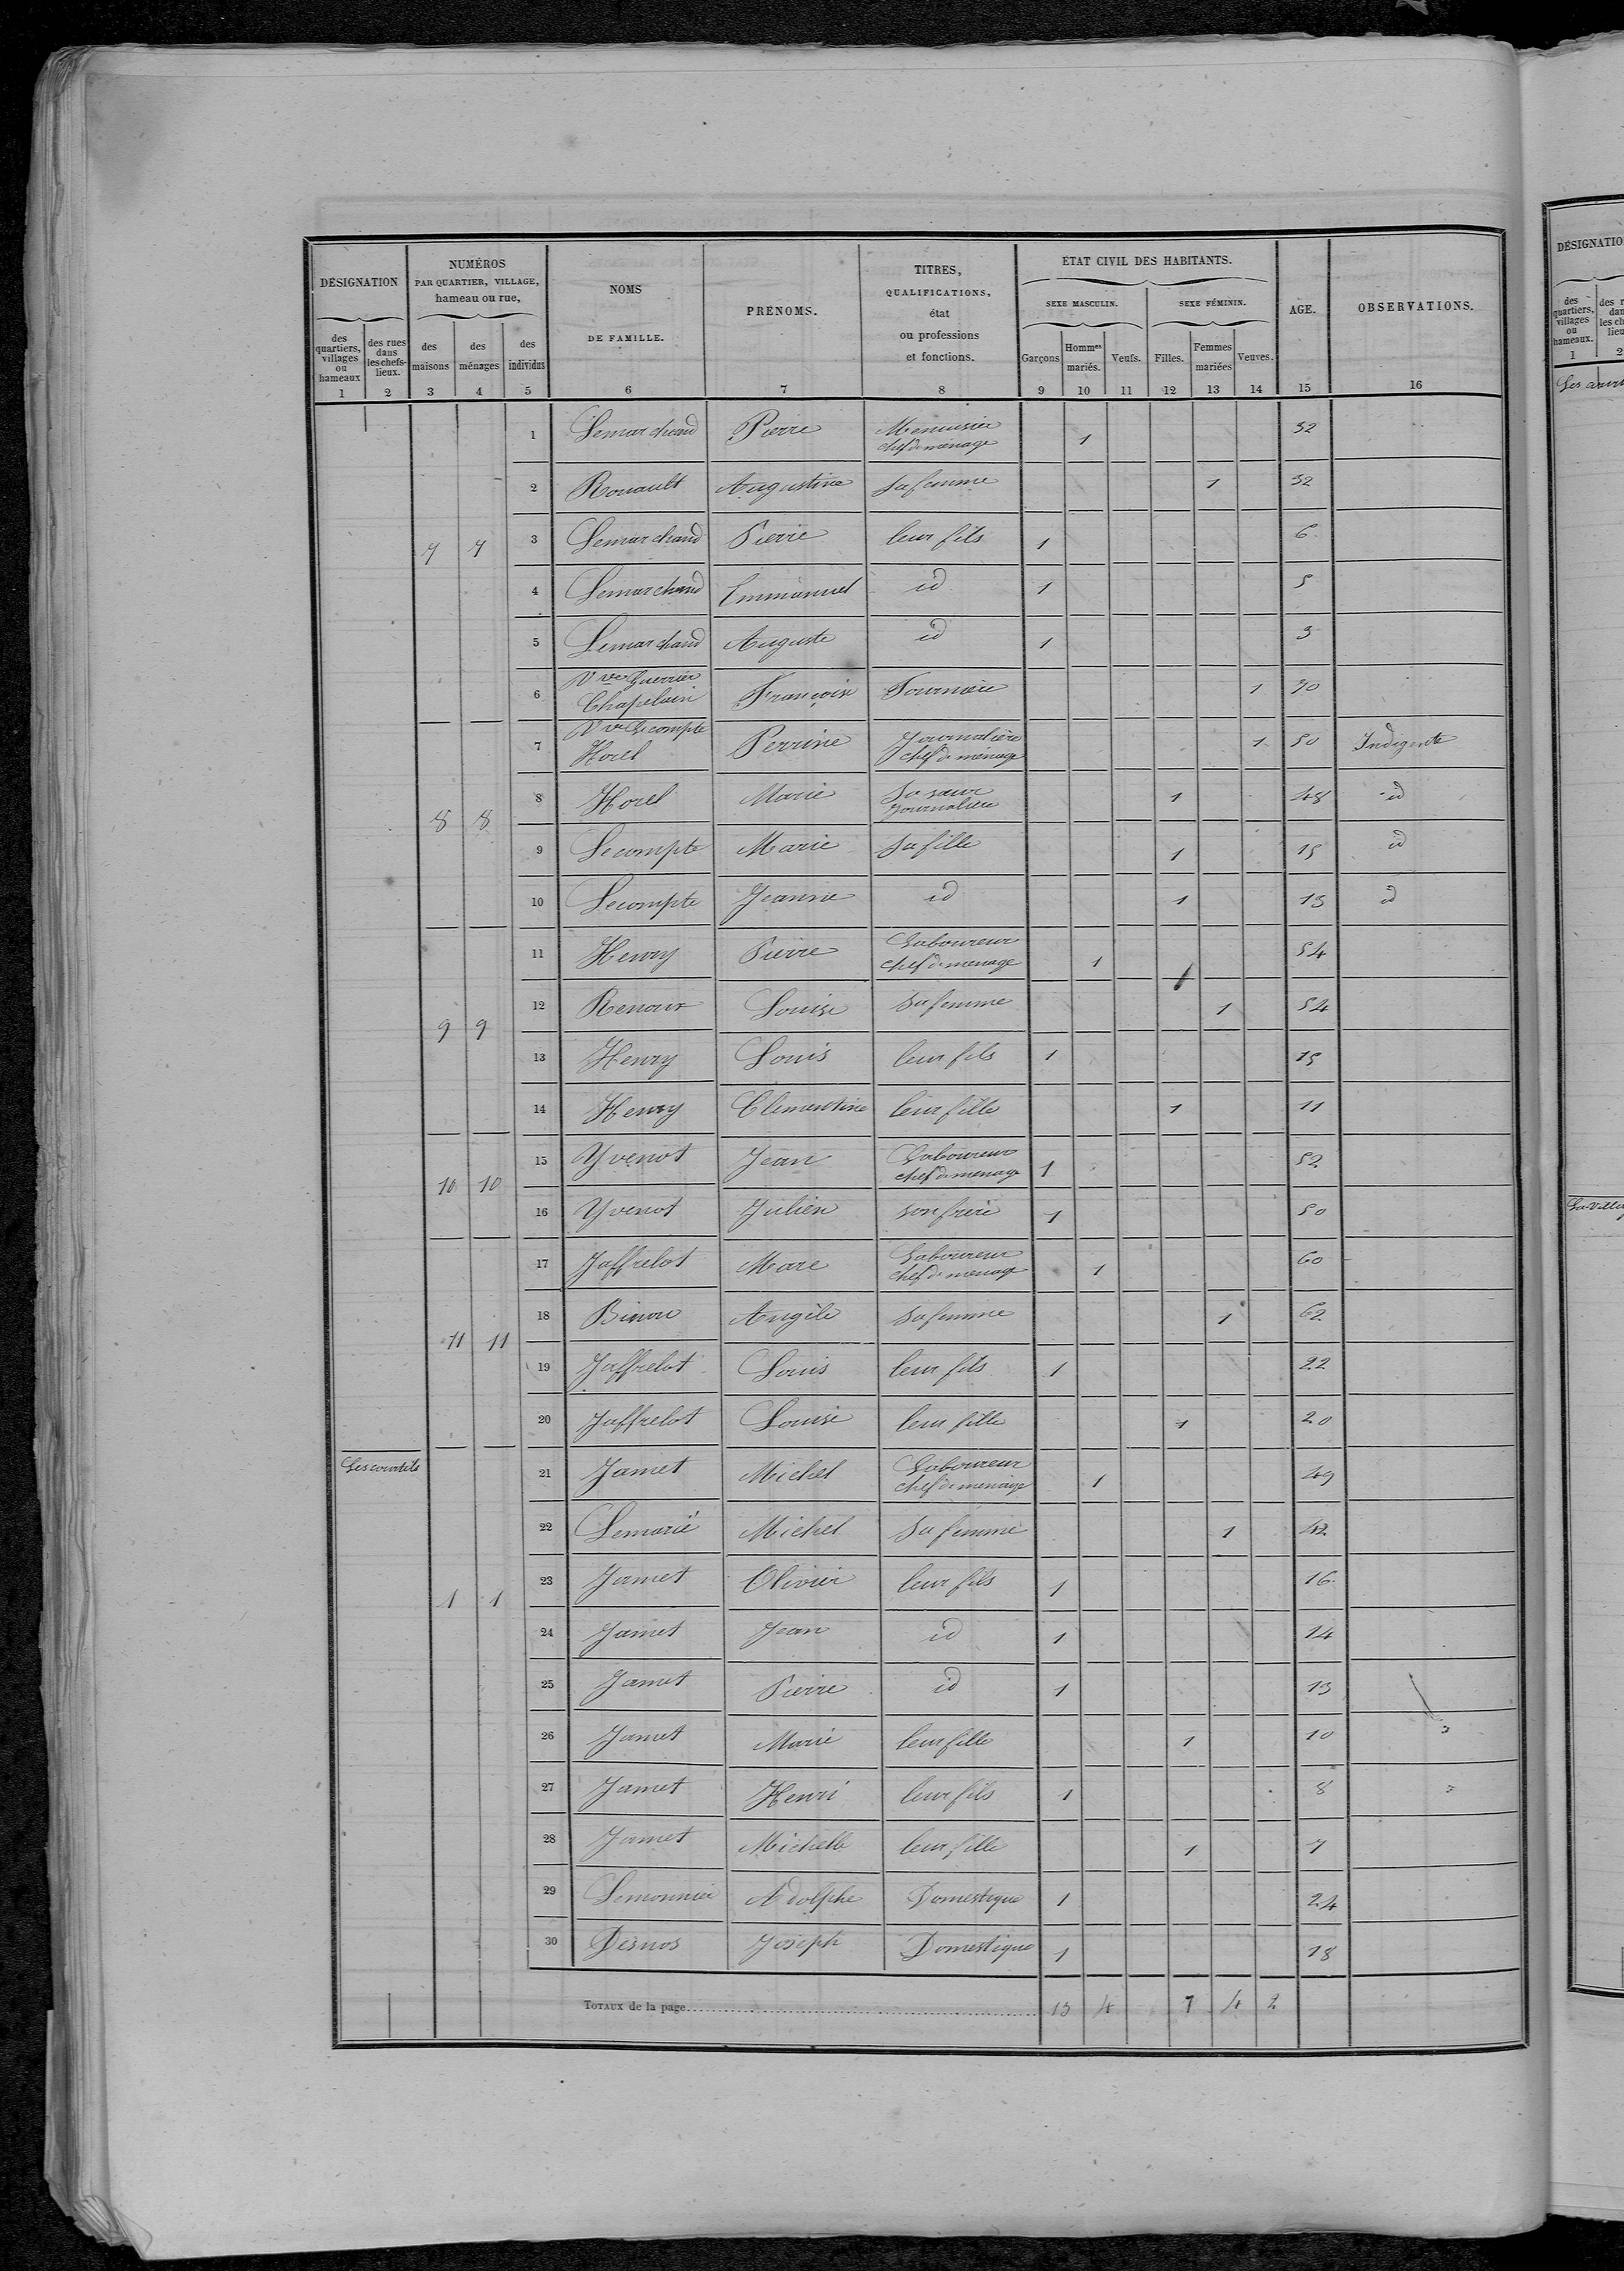 DÉSIGNATION
des quartiers, villages ou hameaux
1
des rues dans les chefs-lieux.
2
NUMÉROS
PAR QUARTIER, VILLAGE,
hameau ou rue,
des maisons
3
des ménages
4
des individus
5
NOMS
DE FAMILLE.
6
PRÉNOMS.
7
TITRES,
QUALIFICATIONS,
état
ou professions
et fonctions.
8
ÉTAT CIVIL DES HABITANTS.
SEXE MASCULIN.
Garçons
9
Hommes mariés.
10
Veufs.
11
SEXE FÉMININ.
Filles.
12
Femmes mariées
13
Veuves.
14
AGE.
15
OBSERVATIONS.
16
1 Lemarchand Pierre Menuisier chef de ménage 1 32
2 Rouault Augustine sa femme 1 32
7 7 3 Lemarchand Pierre leur fils 1 6
4 Lemarchand Emmanuel id 1 5
5 Lemarchand Auguste id 1 3
6 Vve Guerrier Chapelain Françoise 1 70
7 Vve Lecompte Horel Perrine Journalière chef de ménage 1 50 Indigente
8 8 8 Horel Marie Sa sœur Journalière 1 48 id
9 Lecompte Marie sa fille 1 15 id
10 Lecompte Jeanne id 1 13 id
11 Henry Pierre Laboureur chef de ménage 1 54
9 9 12 Renoux Louise sa femme 1 54
13 Henry Louis leur fils 1 15
14 Henry Clementine leur fille 1 11
15 Yvenot Jean Laboureur chef de ménage 1 52
10 10 16 Yvenot Julien son frère 1 50
17 Jaffrelot Marc Laboureur chef de ménage 1 60
11 11 18 Binou Angèle sa femme 1 62
19 Jaffrelot Louis leur fils 1 22
20 Jaffrelot Louise leur fille 1 20
Les courtils 21 Jamet Michel Laboureur chef de ménage 1 49
22 Lemarié Michel sa femme 1 42
1 1 23 Jamet Olivier leur fils 1 16
24 Jamet Jean id 1 14
25 Jamet Pierre id 1 13
26 Jamet Marie leur fille 1 10
27 Jamet Henri leur fils 1 8
28 Jamet Michelle leur fille 1 7
29 Lemonnier Adolphe Domestique 1 24
30 Desnos Joseph Domestique 1 18
TOTAUX de la page 13 4 7 4 2
DÉSIGNATIO
des quartiers, villages ou hameaux.
1
2
Les